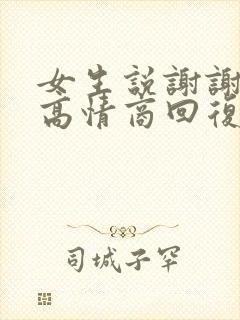 女生説謝謝
高情商回復
司城子罕